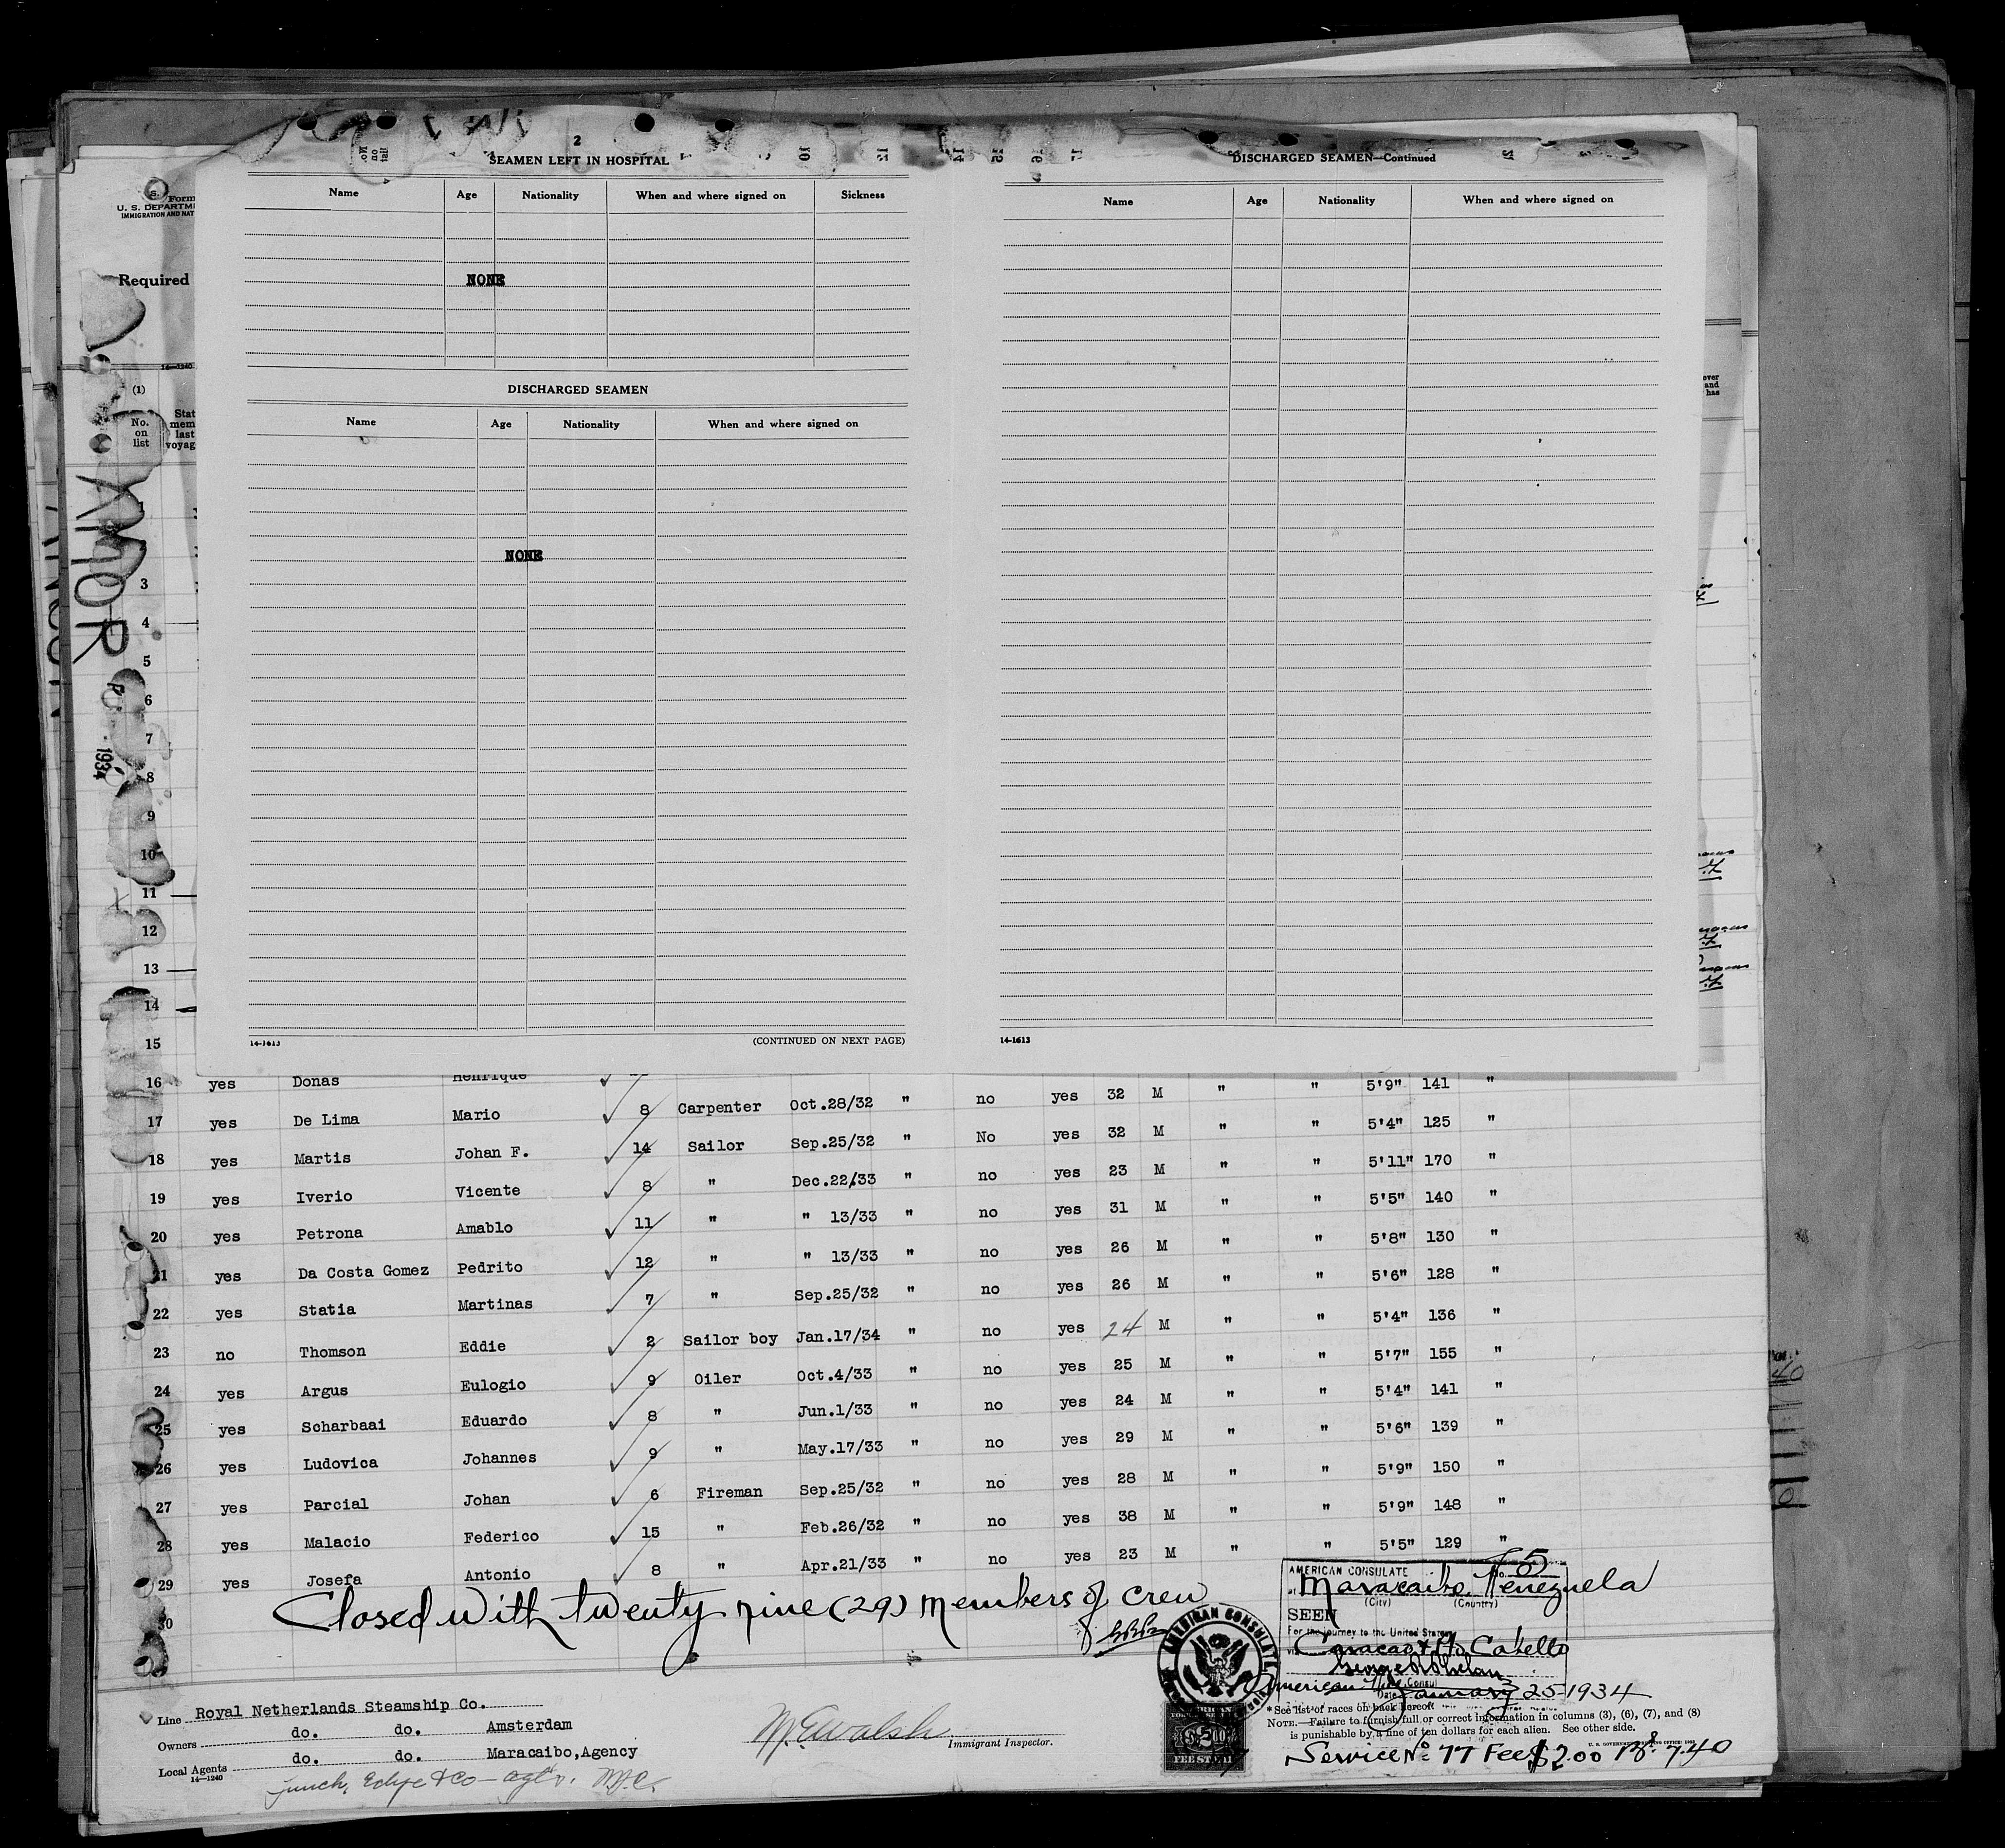 2
SEAMEN LEFT IN HOSPITAL
Name Age Nationality When and where signed on Sickness
NONE
DISCHARGED SEAMEN
Name Age Nationality When and where signed on
NONE
14-1613 (CONTINUED ON NEXT PAGE)
DISCHARGED SEAMEN—Continued
Name Age Nationality When and where signed on
14-1613
Form
U. S. DEPARTM
IMMIGRATION AND NAT
Required
14—1240
(1)
No. on list
Stat
mem
last
voyag
ever
and
has
AMOR
1934
2
3
4
5
6
7
8
9
10
11
12
13
14
15
16 yes Donas Henrique 5'9" 141 "
17 yes De Lima Mario 8 Carpenter Oct.28/32 " no yes 32 M " " 5'4" 125 "
18 yes Martis Johan F. 14 Sailor Sep.25/32 " No yes 32 M " " 5'11" 170 "
19 yes Iverio Vicente 8 " Dec.22/33 " no yes 23 M " " 5'5" 140 "
20 yes Petrona Amablo 11 " " 13/33 " no yes 31 M " " 5'8" 130 "
21 yes Da Costa Gomez Pedrito 12 " " 13/33 " no yes 26 M " " 5'6" 128 "
22 yes Statia Martinas 7 " Sep.25/32 " no yes 26 M " " 5'4" 136 "
23 no Thomson Eddie 2 Sailor boy Jan.17/34 " no yes 24 M " " 5'7" 155 "
24 yes Argus Eulogio 9 Oiler Oct.4/33 " no yes 25 M " " 5'4" 141 "
25 yes Scharbaai Eduardo 8 " Jun.1/33 " no yes 24 M " " 5'6" 139 "
26 yes Ludovica Johannes 9 " May.17/33 " no yes 29 M " " 5'9" 150 "
27 yes Parcial Johan 6 Fireman Sep.25/32 " no yes 28 M " " 5'9" 148 "
28 yes Malacio Federico 15 " Feb.26/32 " no yes 38 M " " 5'5" 129 "
29 yes Josefa Antonio 8 " Apr.21/33 " no yes 23 M "
30 Closed with twenty nine (29) members of crew
AMERICAN CONSULATE No. 5
at Maracaibo, Venezuela
(City) (Country)
SEEN
For the journey to the United States
via Curacao & Pto Cabello
American Vice Consul
Date January 25-1934
AMERICAN CONSULATE
Line Royal Netherlands Steamship Co.
Owners do. do. Amsterdam
Local Agents do. do. Maracaibo,Agency
14—1240
M.E. Walsh
Immigrant Inspector.
* See list of races on back hereof
NOTE.—Failure to furnish full or correct information in columns (3), (6), (7), and (8)
is punishable by a fine of ten dollars for each alien. See other side.
Service No 77 Fee $2.00 Bs. 7.40
$2.00
FEE STAMP